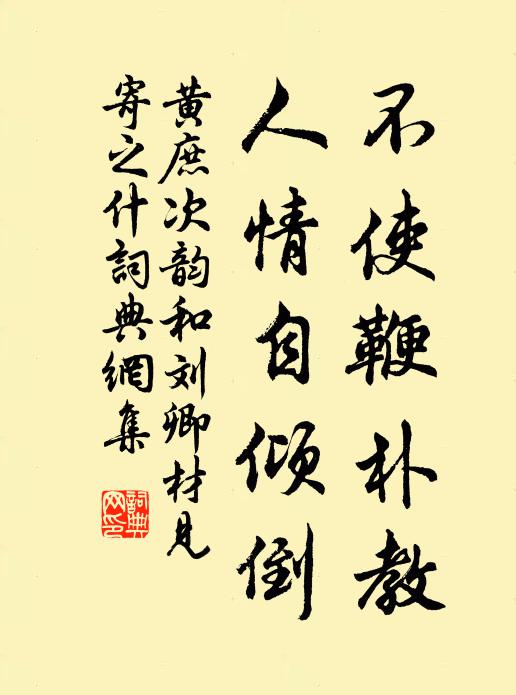 不使鞭朴教
人情自倾倒
黄庶次韵和刘卿材见
寄之什词典網集
詞典
网印